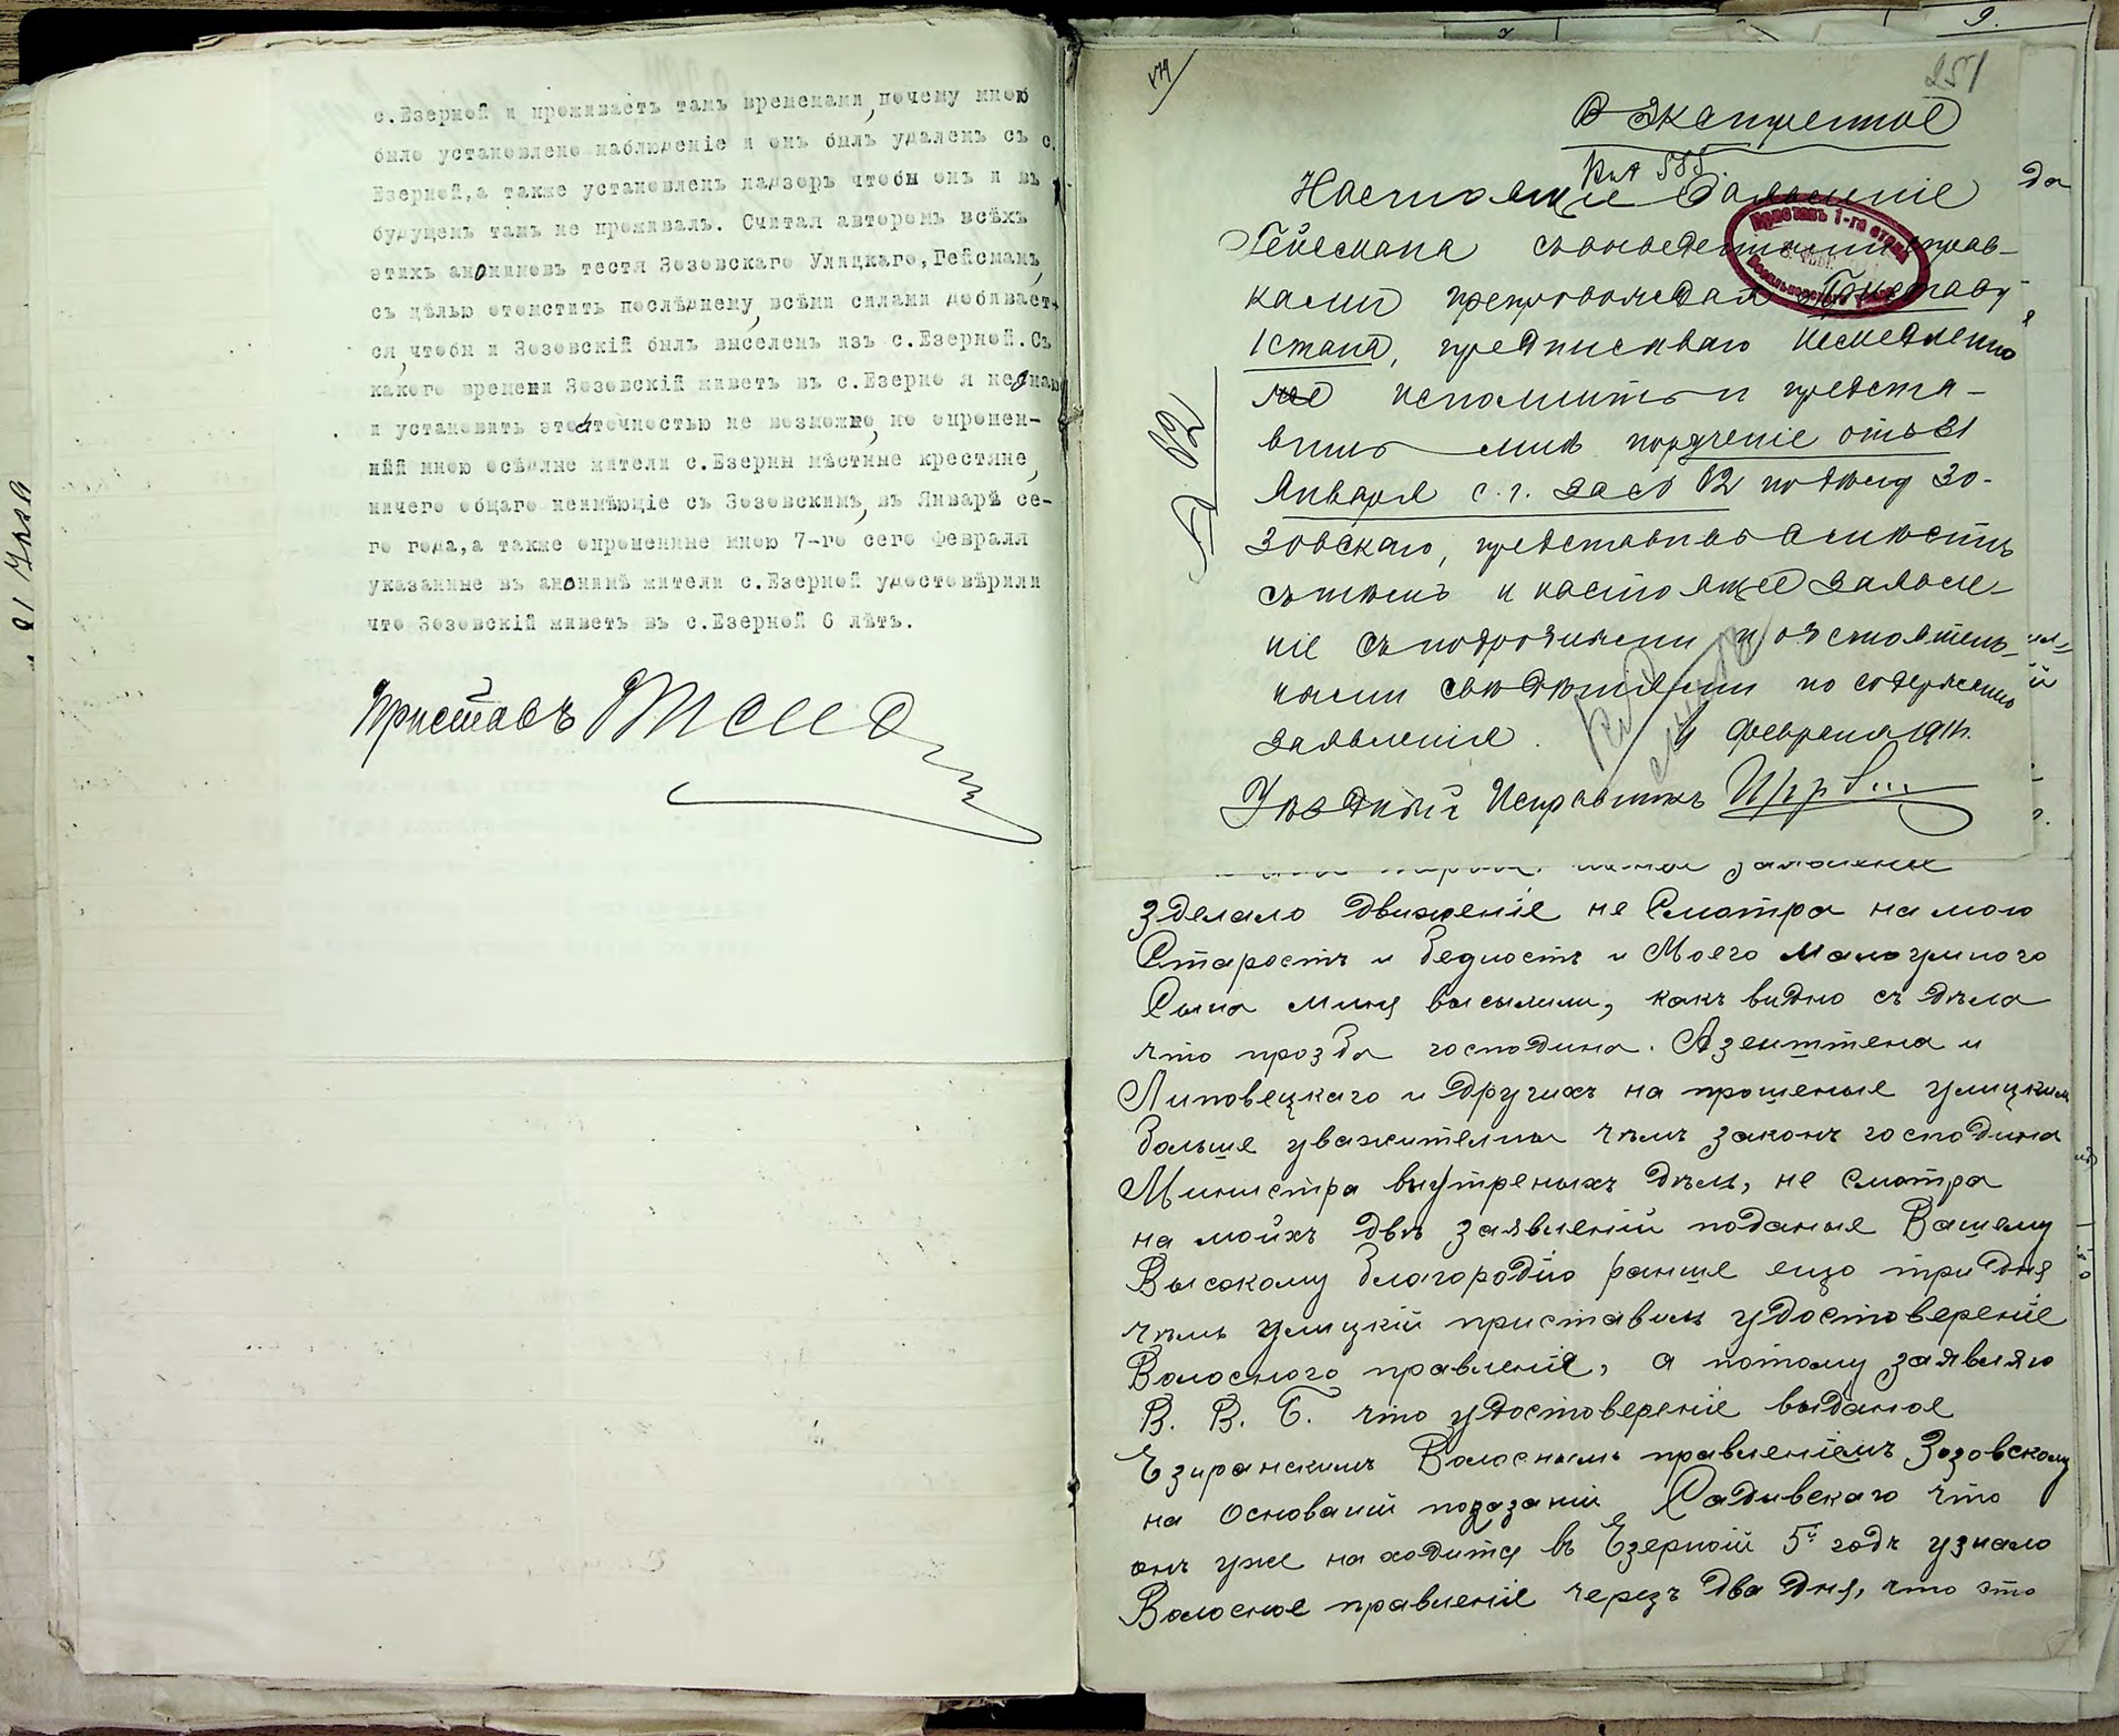 с.Езерной и проживаетъ тамъ временами, почему мною
было установлено наблюденіе и онъ былъ удаленъ съ с.
Езерной,а также установленъ надзоръ чтобы онъ и въ
будущемъ тамъ не проживалъ. Считая авторомъ всѣхъ
этихъ анонимовъ тестя Зозовскаго Улицкаго, Гейсманъ,
съ цѣлью отомстить послѣднему, всѣми силами добивает-
ся, чтобы и Зозовскій былъ выселенъ изъ с.Езерной. Съ
какого времени Зозовскій живетъ въ с.Езерно я не знаю
и установить это точностью не возможно, но опрошен-
ный мною осѣдлые жители с.Езерны мѣстные крестяне,
ничего общаго неимѣющіе съ Зозовскимъ, въ Январѣ се-
го года,а также опрошенные мною 7-го сего Февраля
указанные въ анонимѣ жители с.Езерной удостовѣрили
что Зозовскій живетъ въ с.Езерной 6 лѣтъ.
Приставъ
251
Экстренное
585
Настоящее заявленіе
Гейсмана съ справ-
ками препровождая Приставу
1 стана, предписываю немедленно
исполнить и предста-
вить мнѣ порученіе отъ 31
Января с.г. за № 82 по дѣлу Зо-
зовскаго, представивъ вмѣстѣ
съ тѣмъ и настоящее заявле-
ніе съ подробными и обстоятель-
ными свѣдѣніями по содержанію
заявленія. 4 Февраля 1911г.
Уѣздный Исправникъ
Приставъ 1-го стана
№ 82
да
зделало движеніе не Смотра на мою
Старость и бедность и Моего малоумного
Сына миня высылили, какъ видно съ дѣла
что прозба господина. Азентштена и
Липовецкаго и других на прошеные улицким
больше уважителны чѣмъ законъ господина
Министра внутреныхъ дѣлъ, не смотра
на мойхъ двѣ заявленій поданые Вашему
Высокому благородію раньше ещо три дня
чѣмъ улицкій приставилъ удостоверение
Волосного правленія, а потому заявляю
В. В. Б. что удостоверение выданое
Езиранскимъ Волоснымъ правленіемъ Зозовскому
на Основаній показаній Садивскаго что
онъ уже находитя въ Езерной 5й годъ узнало
Волосное правленіе черезъ два дня, что это